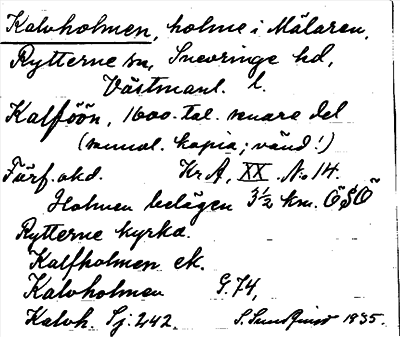 Kalvholmen, holme i Mälaren,
Rytterne sn, Snevringe hd,
Västmanl. l.
Kalföön, 1600-tal. senare del
(samml. kopia; vänd!)
Förf. okd. Kr. A, XX. No 14.
Holmen belägen 3½ km. ÖSÖ
Rytterne kyrka.
Kalfholmen ek.
Kalvholmen G. 74,
Kalvh. Sj. 242. S. 1935.